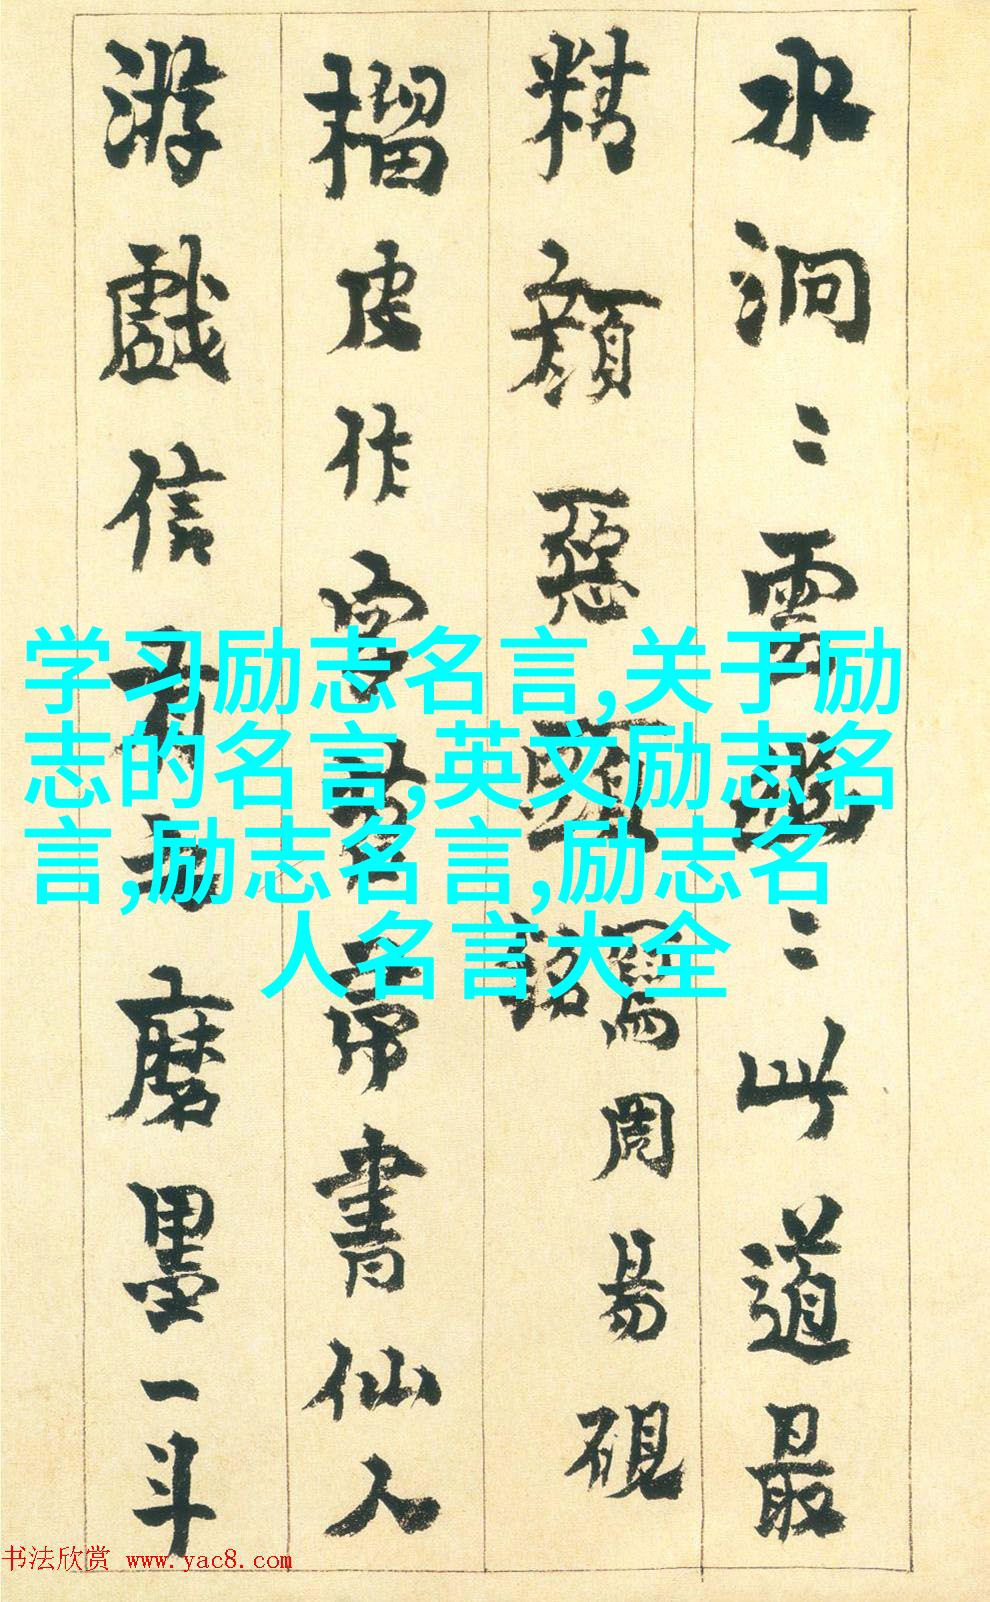 水洞〻雲〻此道最
精顔惡頭寫周易硯
銘
榴皮作字帚書仙人
游戲信有方磨墨一斗
学习励志名言,关于励
志的名言,英文励志名
言,励志名言,励志名
人名言大全
书法欣赏 www.yac8.com